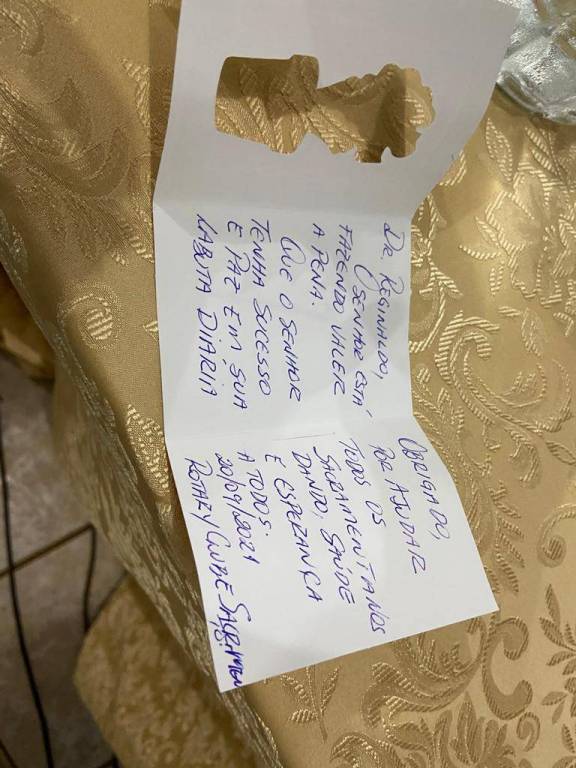 DR. REGINALDO,
O SENHOR ESTÁ
FAZENDO VALER
A PENA.
QUE O SENHOR
TENHA SUCESSO
E PAZ EM SUA
LABUTA DIÁRIA
OBRIGADO,
POR AJUDAR
TODOS OS
SACRAMENTANOS
DANDO, SAÚDE
E ESPERANÇA
A TODOS.
20/09/2021
ROTARY CLUBE SACRAMEN